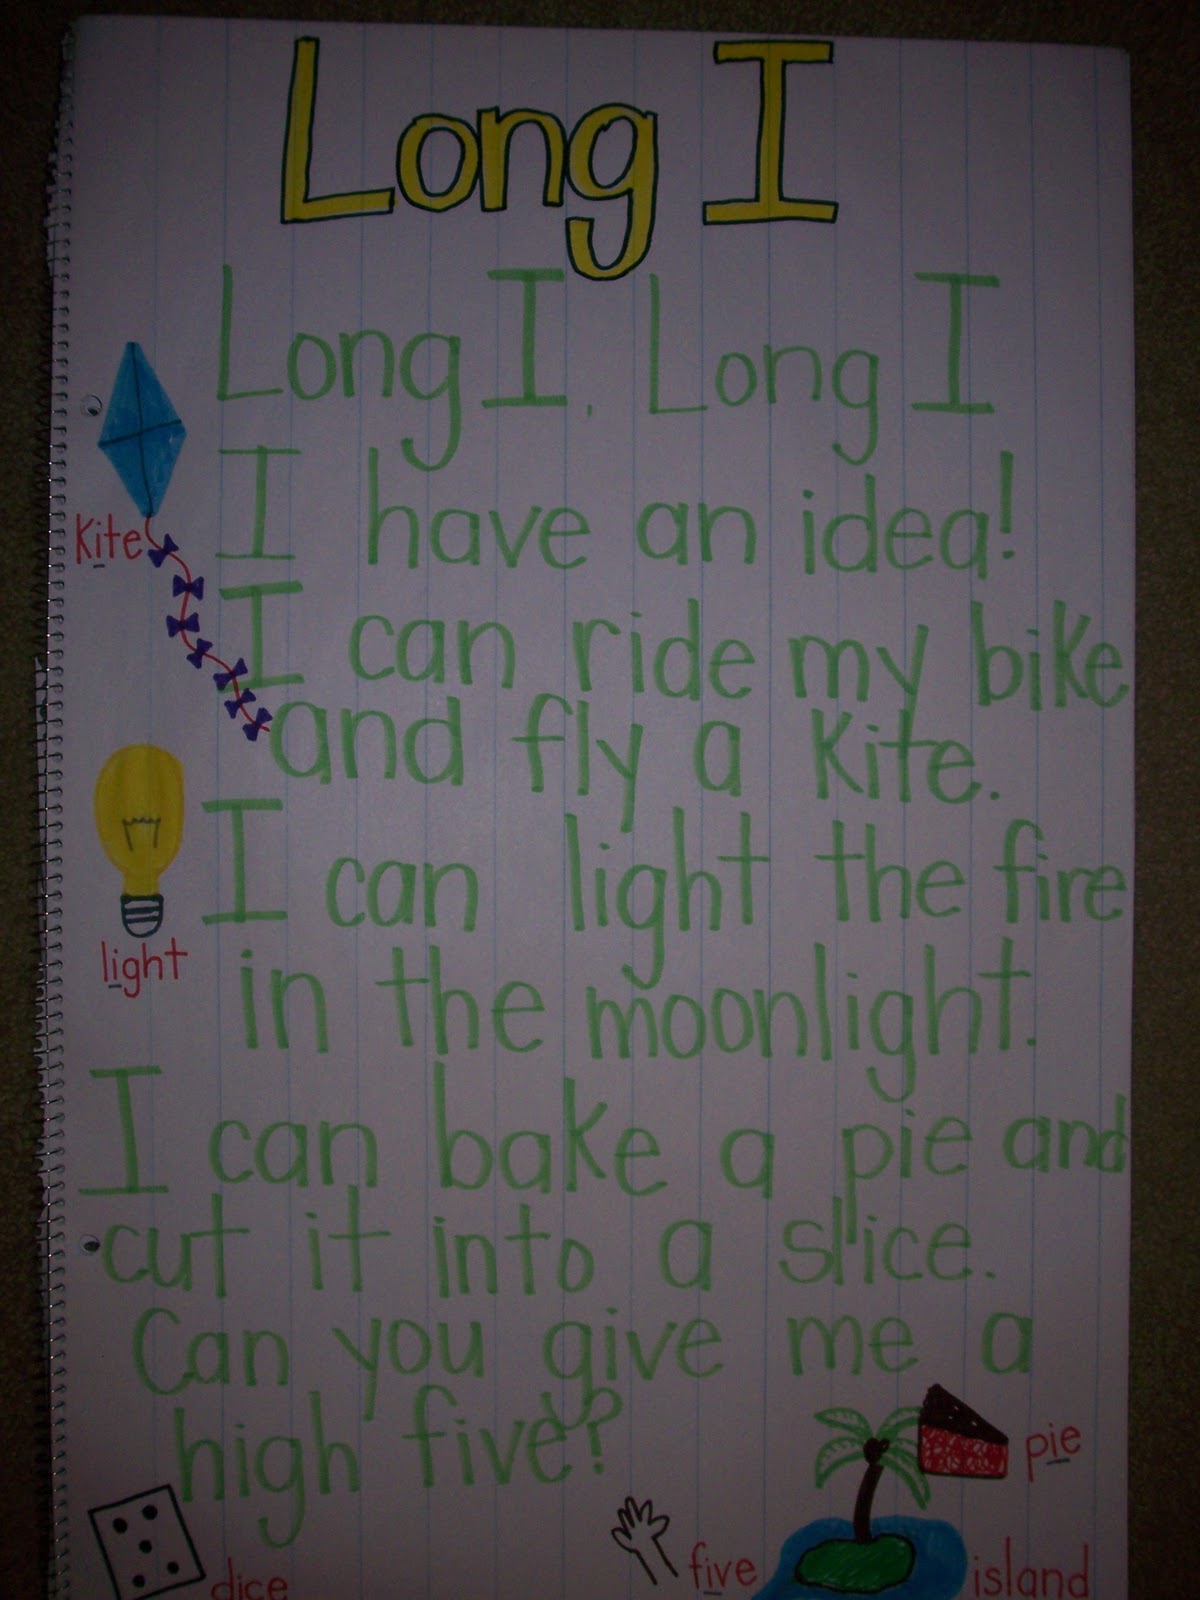 Long I
Long I, Long I
I have an idea!
kite
I can ride my bike
and fly a kite.
I can light the fire
light
in the moonlight.
I can bake a pie and
cut it into a slice.
Can you give me a
high five?
pie
dice
five
island